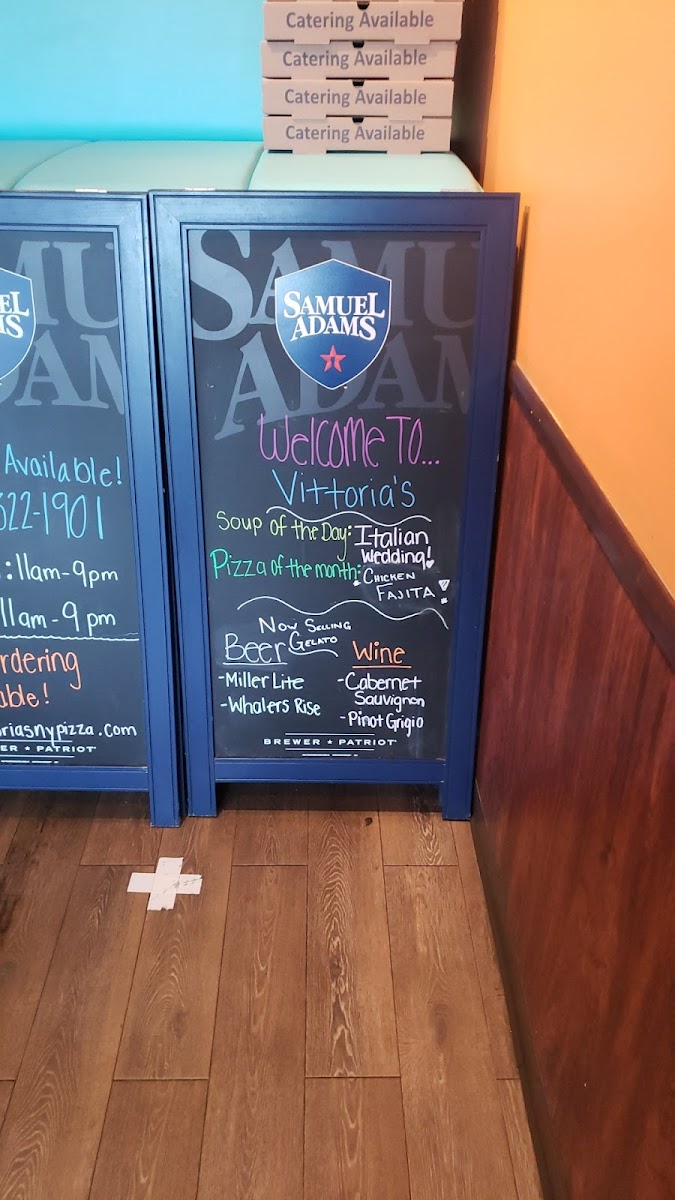 Catering Available
Catering Available
Catering Available
Catering Available
Available!
322-1901
: 11am-9pm
11am-9pm
rdering
able!
riasnypizza.com
ER ★ PATRIOT
SAMUEL
ADAMS
SAMUEL
ADAMS
Welcome To...
Vittoria's
Soup of the Day: Italian
Wedding!
Pizza of the month: Chicken
Fajita!
Now Selling
Gelato
Beer
-Miller Lite
-Whalers Rise
Wine
-Cabernet
Sauvignon
-Pinot Grigio
BREWER ★ PATRIOT